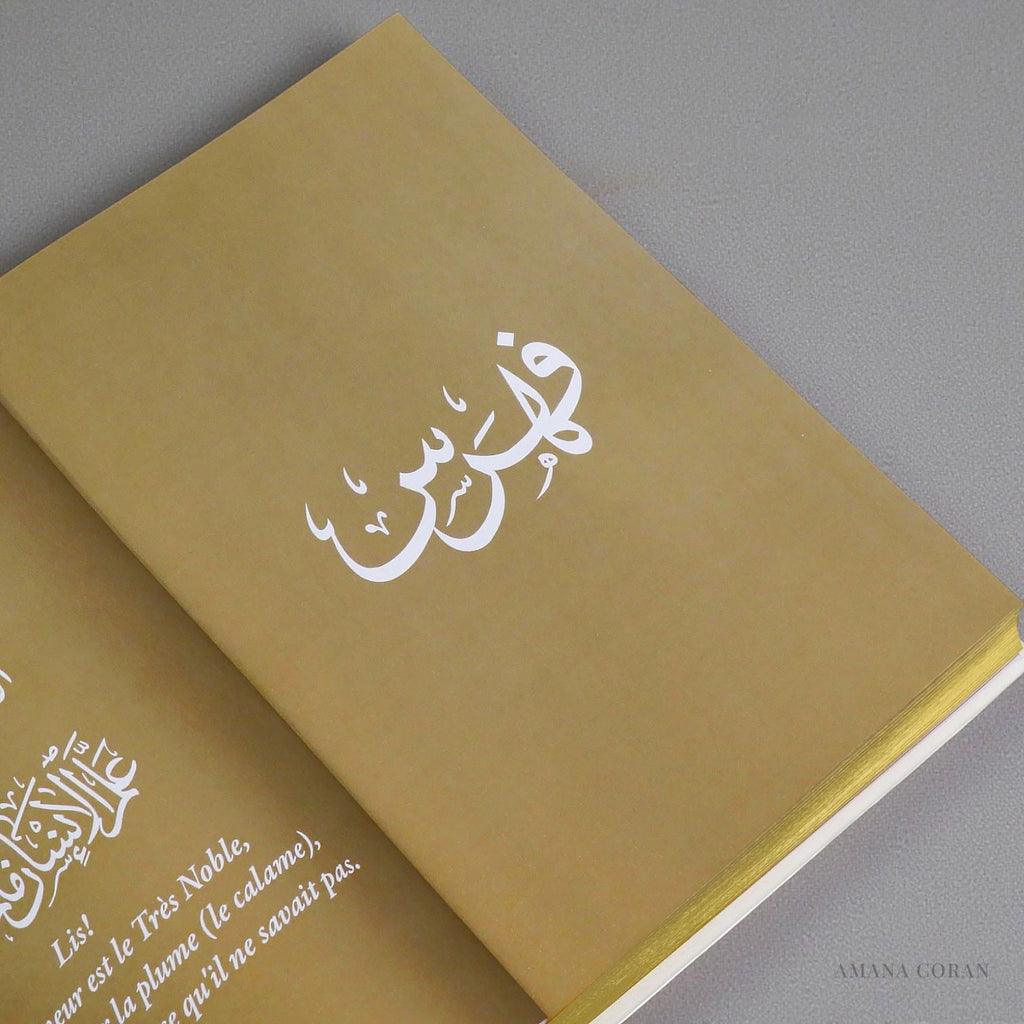 فهرس
علم الإنسان
Lis!
est le Très Noble,
la plume (le calame),
qu'il ne savait pas.
AMANA CORAN